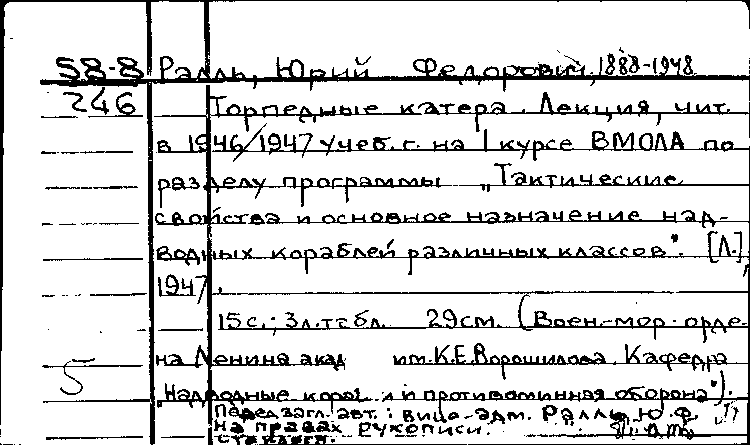 58-8 Ралль, Юрий Федорович, 1888-1948
246 Торпедные катера. Лекция, чит.
в 1946/1947 учеб. г. на I курсе ВМОЛА по
разделу программы „Тактические
свойства и основное назначение над-
водных кораблей различных классов". [Л.],
1947.
15 с.; 3 л. табл. 29 см. (Воен.-мор. орде-
на Ленина акад им. К.Е. Ворошилова. Кафедра
5
„Надводные кораб. и противоминная оборона").
Перед загл. авт.: вице-адм. Ралль Ю.Ф.
На правах рукописи.